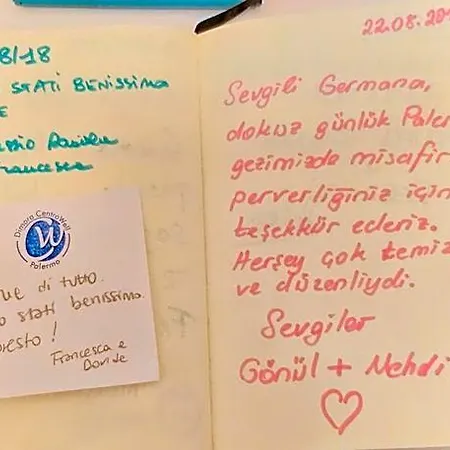 8/18
STATI BENISSIMO
E
Davide
Francesca
Dimora CentroWell
W
Palermo
di tutto.
stati benissimo.
presto!
Francesca e
Davide
22.08.201
Sevgili Germana,
dokuz günlük Paler
gezimizde misafir
perverliğiniz için
teşekkür ederiz.
Herşey çok temiz
ve düzenliydi.
Sevgiler
Gönül + Mehdi